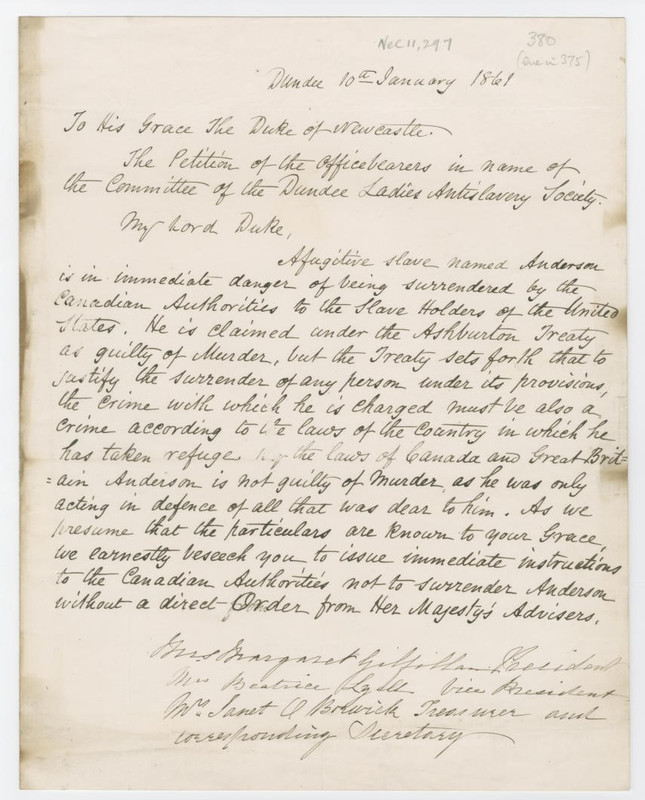 NeC 11,297
380
(one in 375)
Dundee 10th January 1861
To His Grace The Duke of Newcastle.
The Petition of the Officebearers in name of
the Committee of the Dundee Ladies Antislavery Society.
My Lord Duke,
A fugitive slave named Anderson
is in immediate danger of being surrendered by the
Canadian Authorities to the Slave Holders of the United
States. He is claimed under the Ashburton Treaty
as guilty of Murder, but the Treaty sets forth that to
justify the surrender of any person under its provisions,
the crime with which he is charged must be also a
crime according to the laws of the Country in which he
has taken refuge by the laws of Canada and Great Brit=
=ain Anderson is not guilty of Murder, as he was only
acting in defence of all that was dear to him. As we
presume that the particulars are known to your Grace,
we earnestly beseech you to issue immediate instructions
to the Canadian Authorities not to surrender Anderson
without a direct Order from Her Majesty's Advisers.
Mrs Margaret Gilfillan President
Mrs Beatrice Lyell Vice President
Mrs Janet Borwick Treasurer and
corresponding Secretary